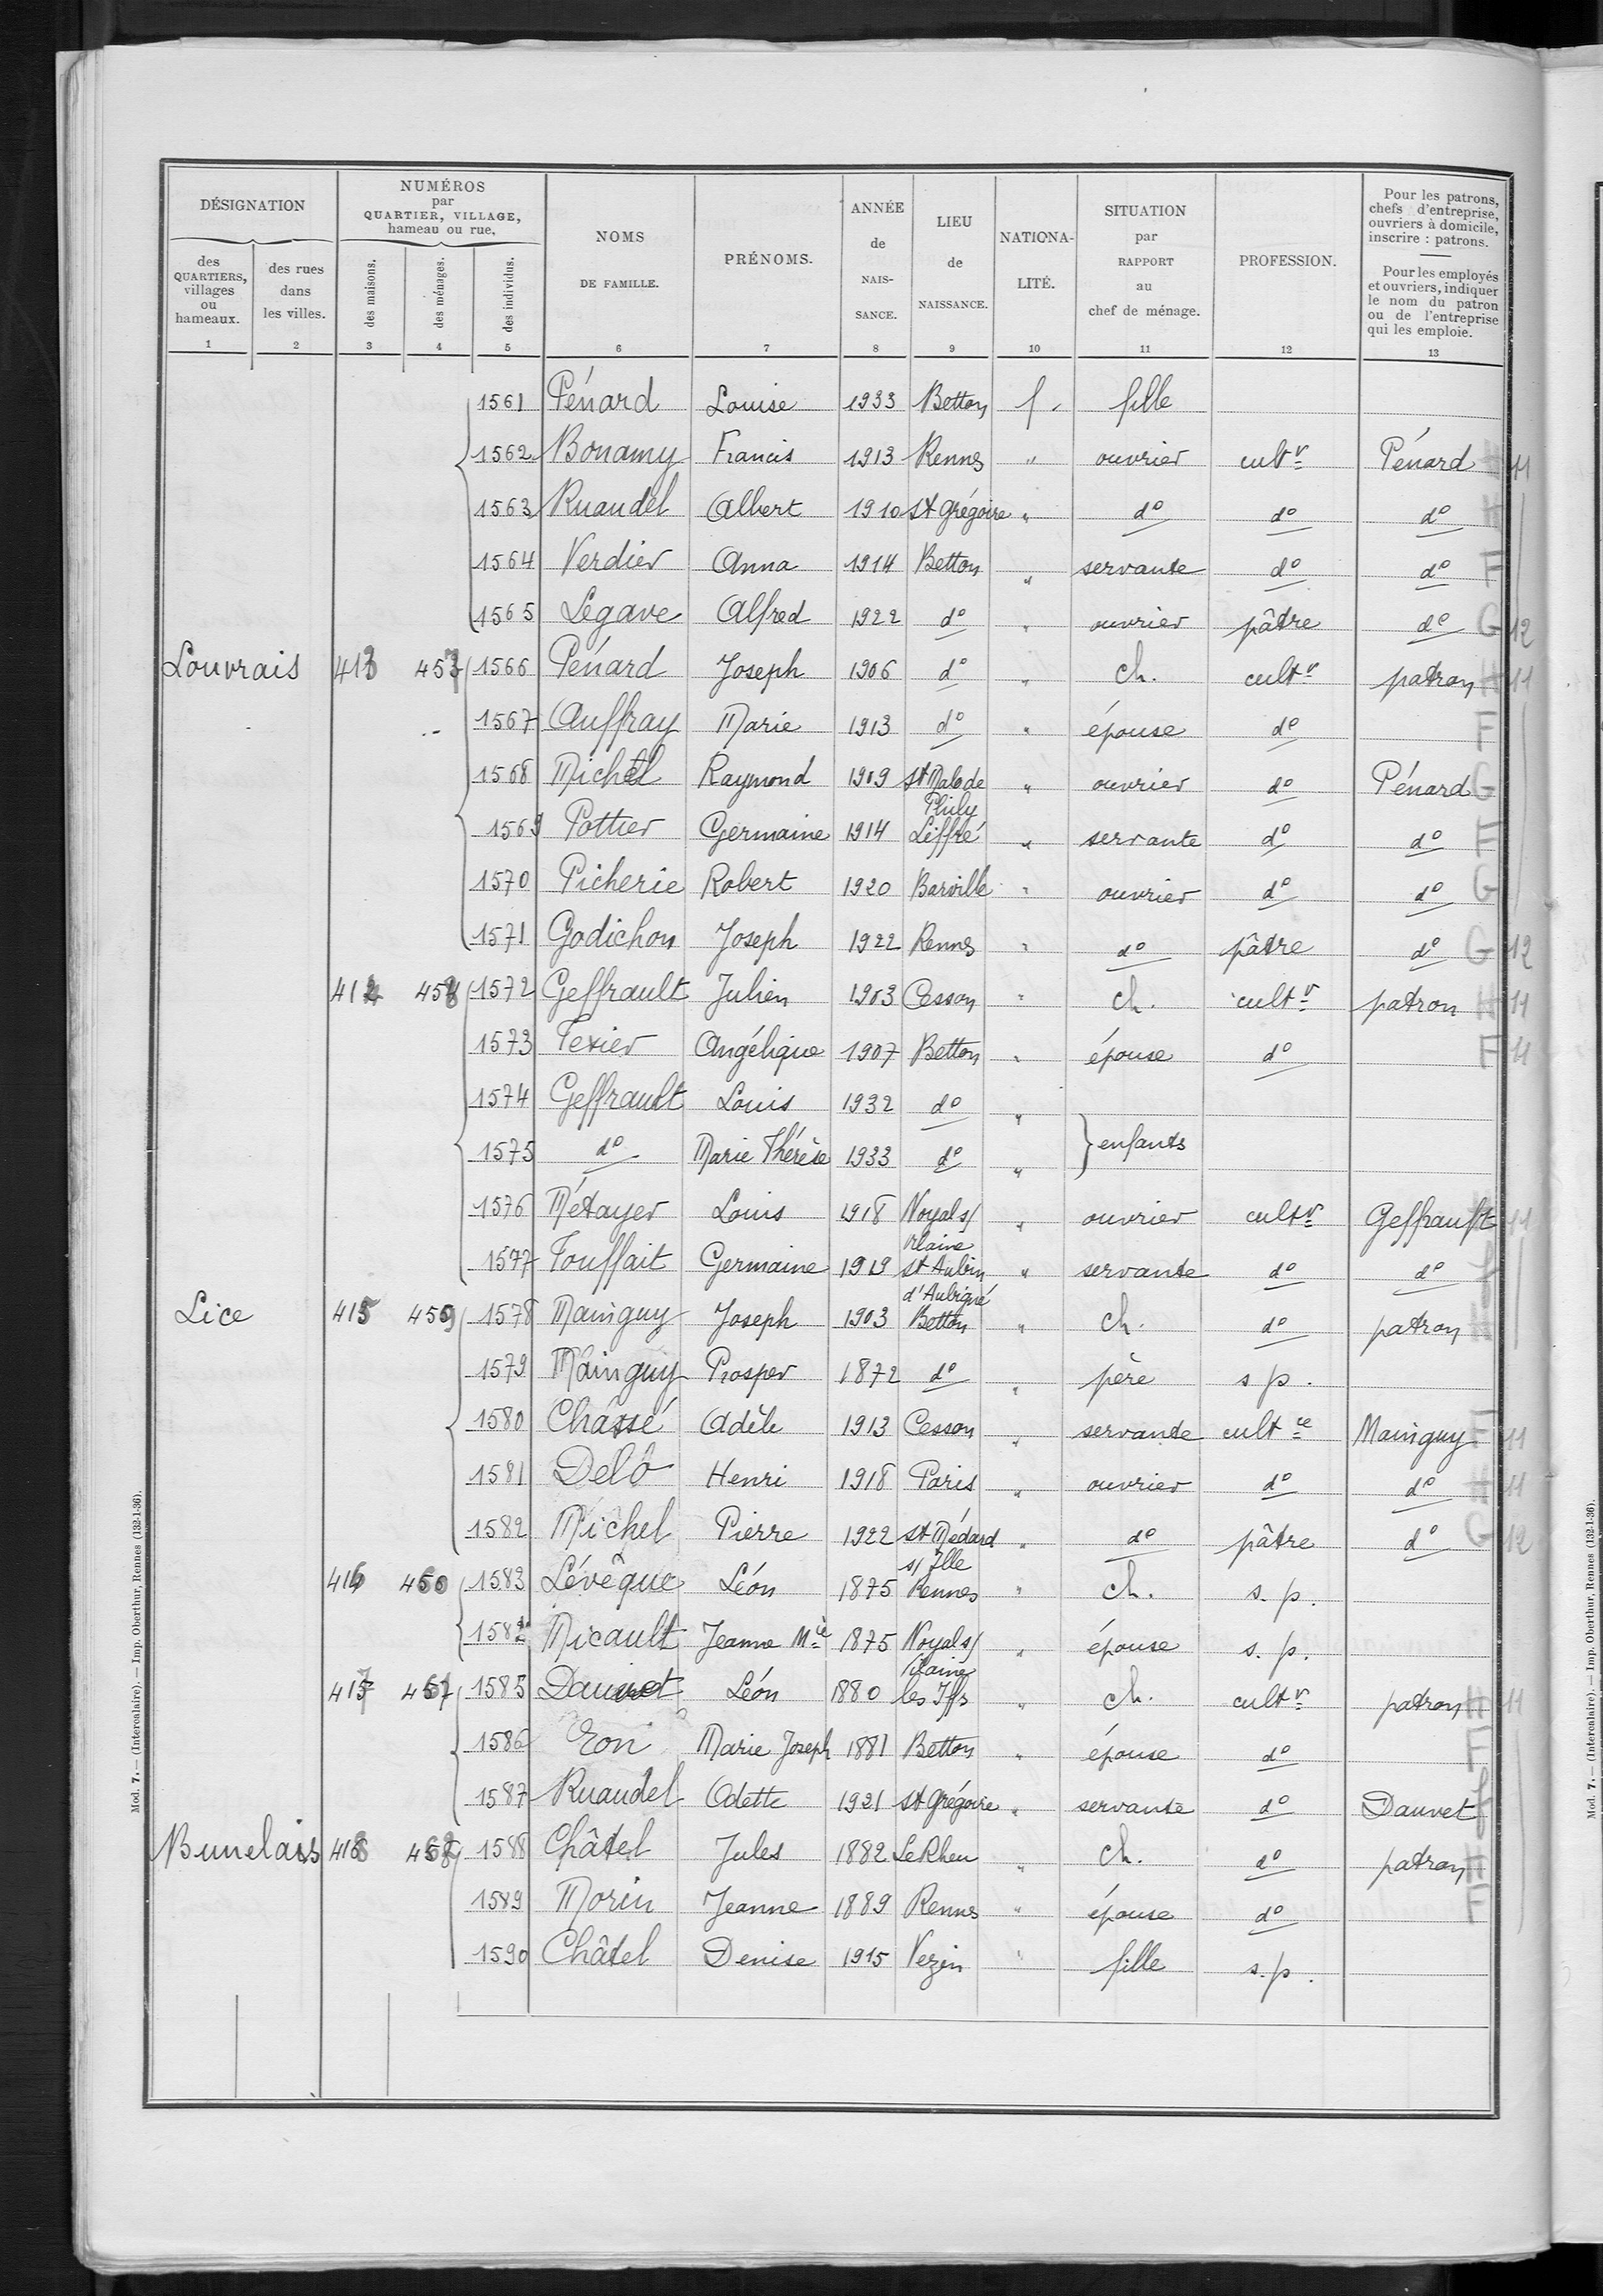 DÉSIGNATION
des QUARTIERS, villages ou hameaux.
des rues dans les villes.
NUMÉROS par QUARTIER, VILLAGE, hameau ou rue.
des maisons.
des ménages.
des individus.
NOMS DE FAMILLE.
PRÉNOMS.
ANNÉE de NAIS-SANCE.
LIEU de NAISSANCE.
NATIONA-LITÉ.
SITUATION par RAPPORT au chef de ménage.
PROFESSION.
Pour les patrons, chefs d'entreprise, ouvriers à domicile, inscrire : patrons.
Pour les employés et ouvriers, indiquer le nom du patron ou de l'entreprise qui les emploie.
1 2 3 4 5 6 7 8 9 10 11 12 13
1561 Pénard Louise 1933 Betton f. fille
1562 Bonamy Francis 1913 Rennes " ouvrier cultr Pénard H 11
1563 Ruaudel Albert 1910 St Grégoire " do do do H
1564 Verdier Anna 1914 Betton " servante do do F
1565 Legave Alfred 1922 do " ouvrier pâtre do G 12
Louvrais 413 1566 Pénard Joseph 1906 do " ch. cultr patron H 11
1567 Auffray Marie 1913 do " épouse do F
1568 Michel Raymond 1909 St Malo de Phily " ouvrier do Pénard G
1569 Pottier Germaine 1914 Liffré " servante do do F
1570 Picherie Robert 1920 Barville " ouvrier do do G
1571 Godichon Joseph 1922 Rennes " do pâtre do G 12
1572 Geffrault Julien 1903 Cesson " ch. cultr patron H 11
1573 Texier Angélique 1907 Betton " épouse do F 11
1574 Geffrault Louis 1932 do "
1575 do Marie Thérèse 1933 do " } enfants
1576 Métayer Louis 1918 Noyal s/ Vilaine " ouvrier cultr Geffrault 11
1577 Touffait Germaine 1919 St Aubin d'Aubigné " servante do do
Lice 415 459 1578 Mainguy Joseph 1903 Betton " ch. do patron H
1579 Mainguy Prosper 1872 do " père s p.
1580 Chassé Adèle 1913 Cesson " servante cultce Mainguy F 11
1581 Delô Henri 1918 Paris " ouvrier do do H 11
1582 Michel Pierre 1922 St Médard s/ Ille " do pâtre do G 12
416 460 1583 Lévêque Léon 1875 Rennes " ch. s. p.
Micault Jeanne Mie 1875 Noyal s/ Vilaine " épouse s. p.
417 1585 Dauvet Léon 1880 les Iffs " ch. cultr patron H 11
1586 Eon Marie Joseph 1881 Betton " épouse do F
1587 Ruaudel Odette 1921 St Grégoire " servante do Dauvet
Bunelais 418 1588 Châtel Jules 1882 Le Rheu " ch. do patron H
1589 Morin Jeanne 1889 Rennes " épouse do F
1590 Châtel Denise 1915 Vezin " fille s. p.
Mod. 7. — (Intercalaire). — Imp. Oberthur, Rennes (132-1-36).
Mod. 7. — (Intercalaire). — Imp. Oberthur, Rennes (132-1-36).